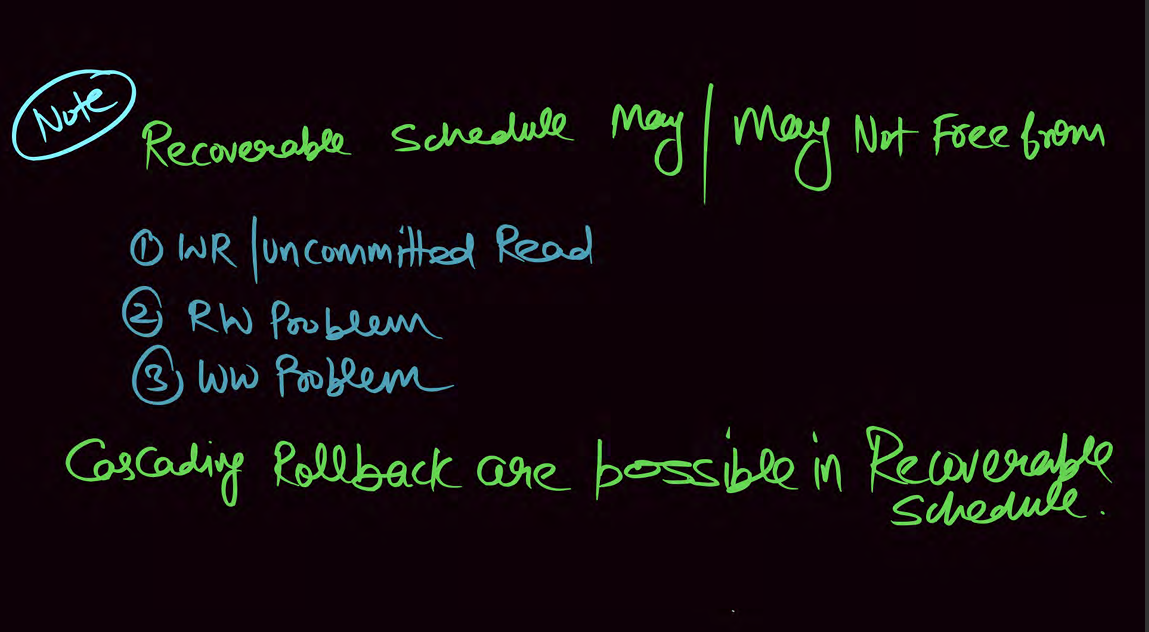 Note
Recoverable Schedule May | May Not Free from
① WR | uncommitted Read
② RW Problem
③ WW Problem
Cascading Rollback are possible in Recoverable
Schedule.